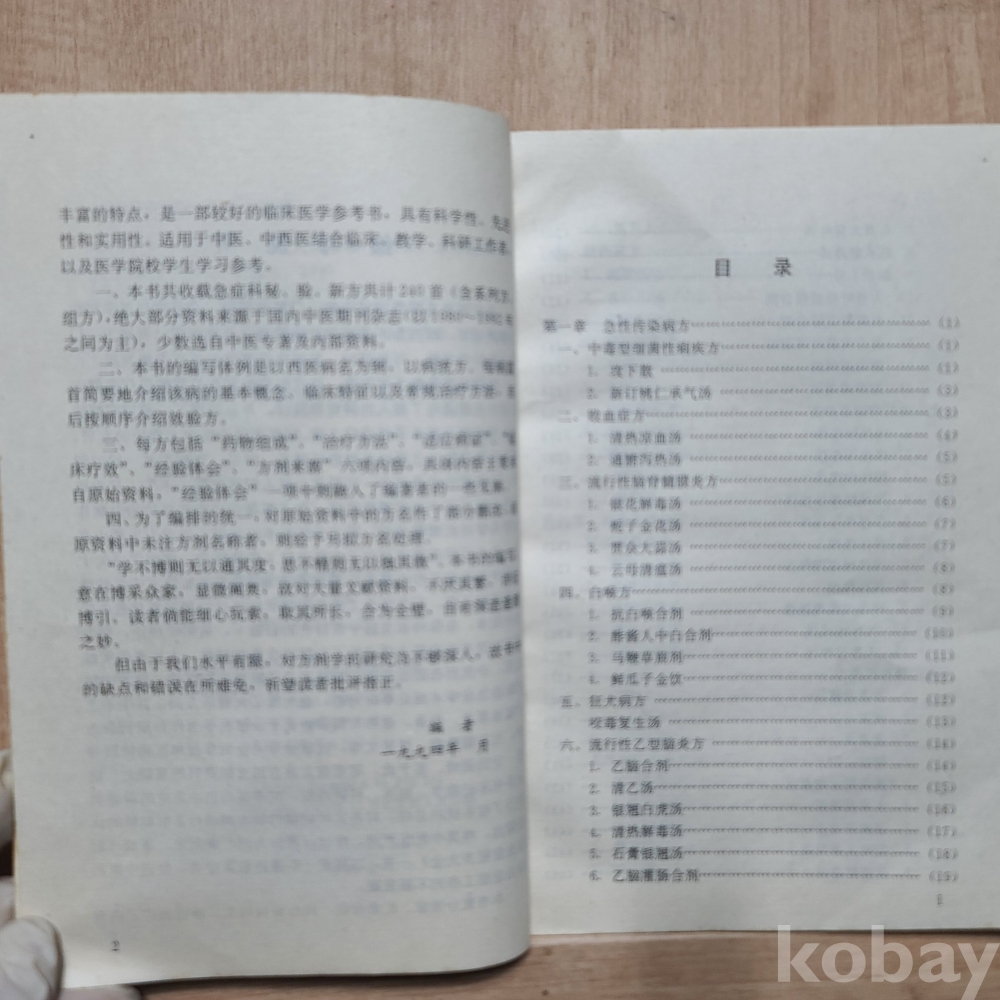 丰富的特点，是一部较好的临床医学参考书，具有科学性、先进
性和实用性。适用于中医、中西医结合临床、教学、科研工作者
以及医学院校学生学习参考。
一、本书共收载急症科秘、验、新方共计240首（含系列方、
组方），绝大部分资料来源于国内中医期刊杂志
之间为主），少数选自中医专著及内部资料。
二、本书的编写体例是以西医病名为纲，以病统方，每病
首简要地介绍该病的基本概念、临床特征以及常规治疗方法，
后按顺序介绍效验方。
三、每方包括“药物组成”、“治疗方法”、“适应病证”、“临
床疗效”、“经验体会”、“方剂来源”六项内容，
自原始资料，“经验体会”一项中则融入了编著者的一些见解。
四、为了编排的统一，对原始资料中的方名作了部分
原资料中未注方剂名称者，则给予
“学不博则无以通其变，思不精则无以烛其微”，本书的编写
意在博采众家，显微阐奥，故对大量文献资料，不厌其繁，
博引，读者倘能细心玩索，取其所长，合为全璧，
之妙。
但由于我们水平有限，对方剂学的研究尚不够深入，故书中
的缺点和错误在所难免，祈望读者批评指正。
编 者
一九九四年 月
2
目 录
第一章 急性传染病方……（1）
一、中毒型细菌性痢疾方……（1）
1. 攻下散……（1）
2. 新订桃仁承气汤……（3）
二、败血症方……（3）
1. 清热凉血汤……（4）
2. 通腑泻热汤……（5）
三、流行性脑脊髓膜炎方……（5）
1. 银花解毒汤……（6）
2. 栀子金花汤……（7）
3. 贯众大蒜汤……（7）
4. 云母清瘟汤……（8）
四、白喉方……（8）
1. 抗白喉合剂……（9）
2. 人中白合剂……（10）
3. 马鞭草煎剂……（11）
4. 鲜瓜子金饮……（12）
五、狂犬病方……（13）
咬毒复生汤……（13）
六、流行性乙型脑炎方……（14）
1. 乙脑合剂……（14）
2. 清乙汤……（15）
3. 银翘白虎汤……（16）
4. 清热解毒汤……（17）
5. 石膏银翘汤……（18）
6. 乙脑灌肠合剂……（19）
1
kobay